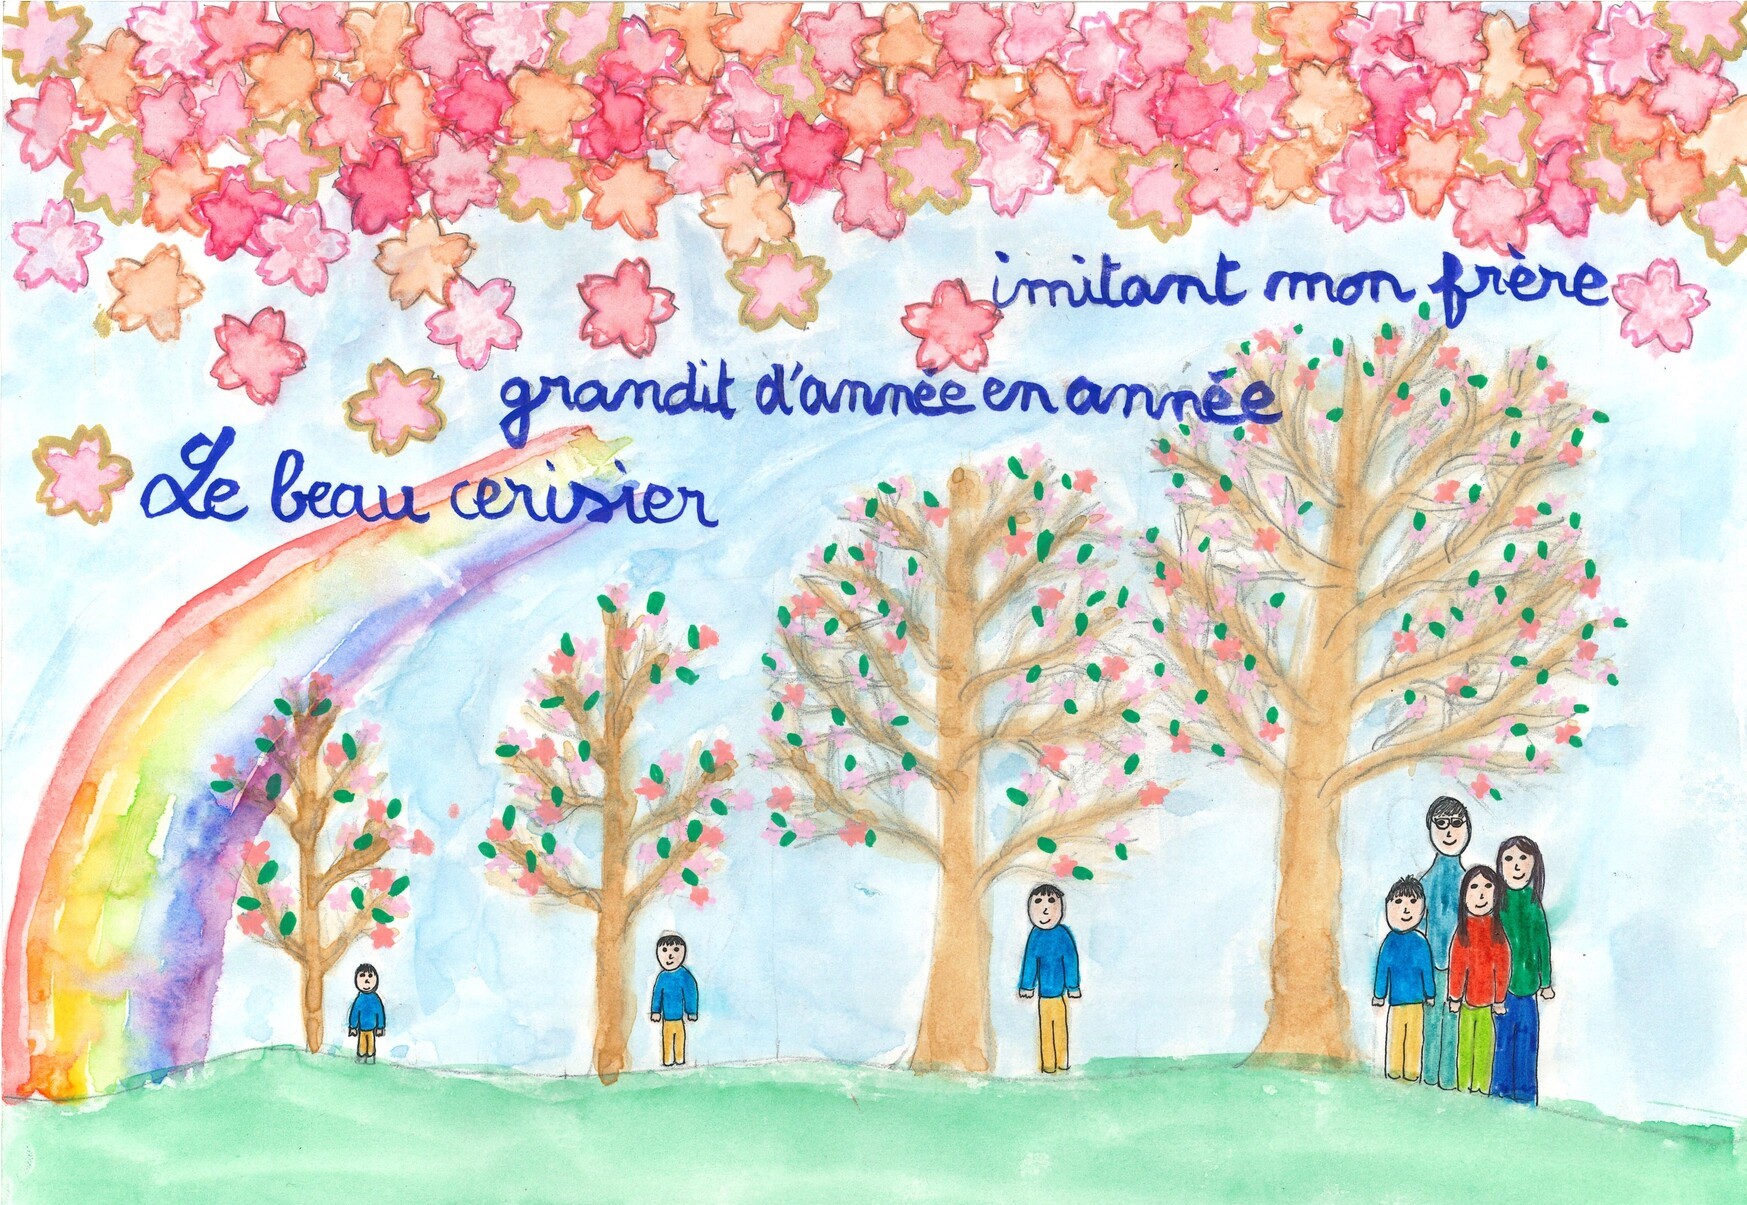 Le beau cerisier
grandit d'année en année
imitant mon frère